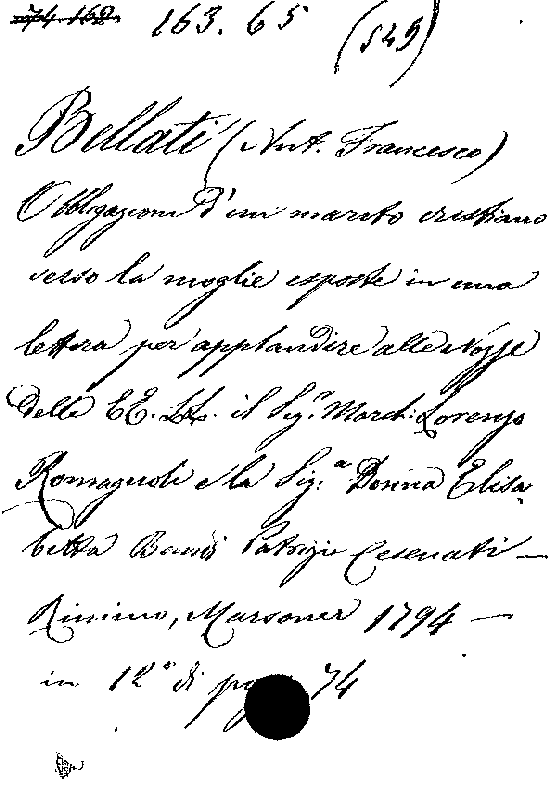 74.162. 163. 65 (549)
Bellati (Ant. Francesco)
Obbligazioni d'un marito cristiano
verso la moglie esposte in una
lettera per applaudire alle Nozze
delle EE. LL. il Sig.r March: Lorenzo
Romagnoli e la Sig.a Donna Elisa
betta Patrizi Cesenati —
Rimino, Marsoner 1794 —
in 12° di pag. 74